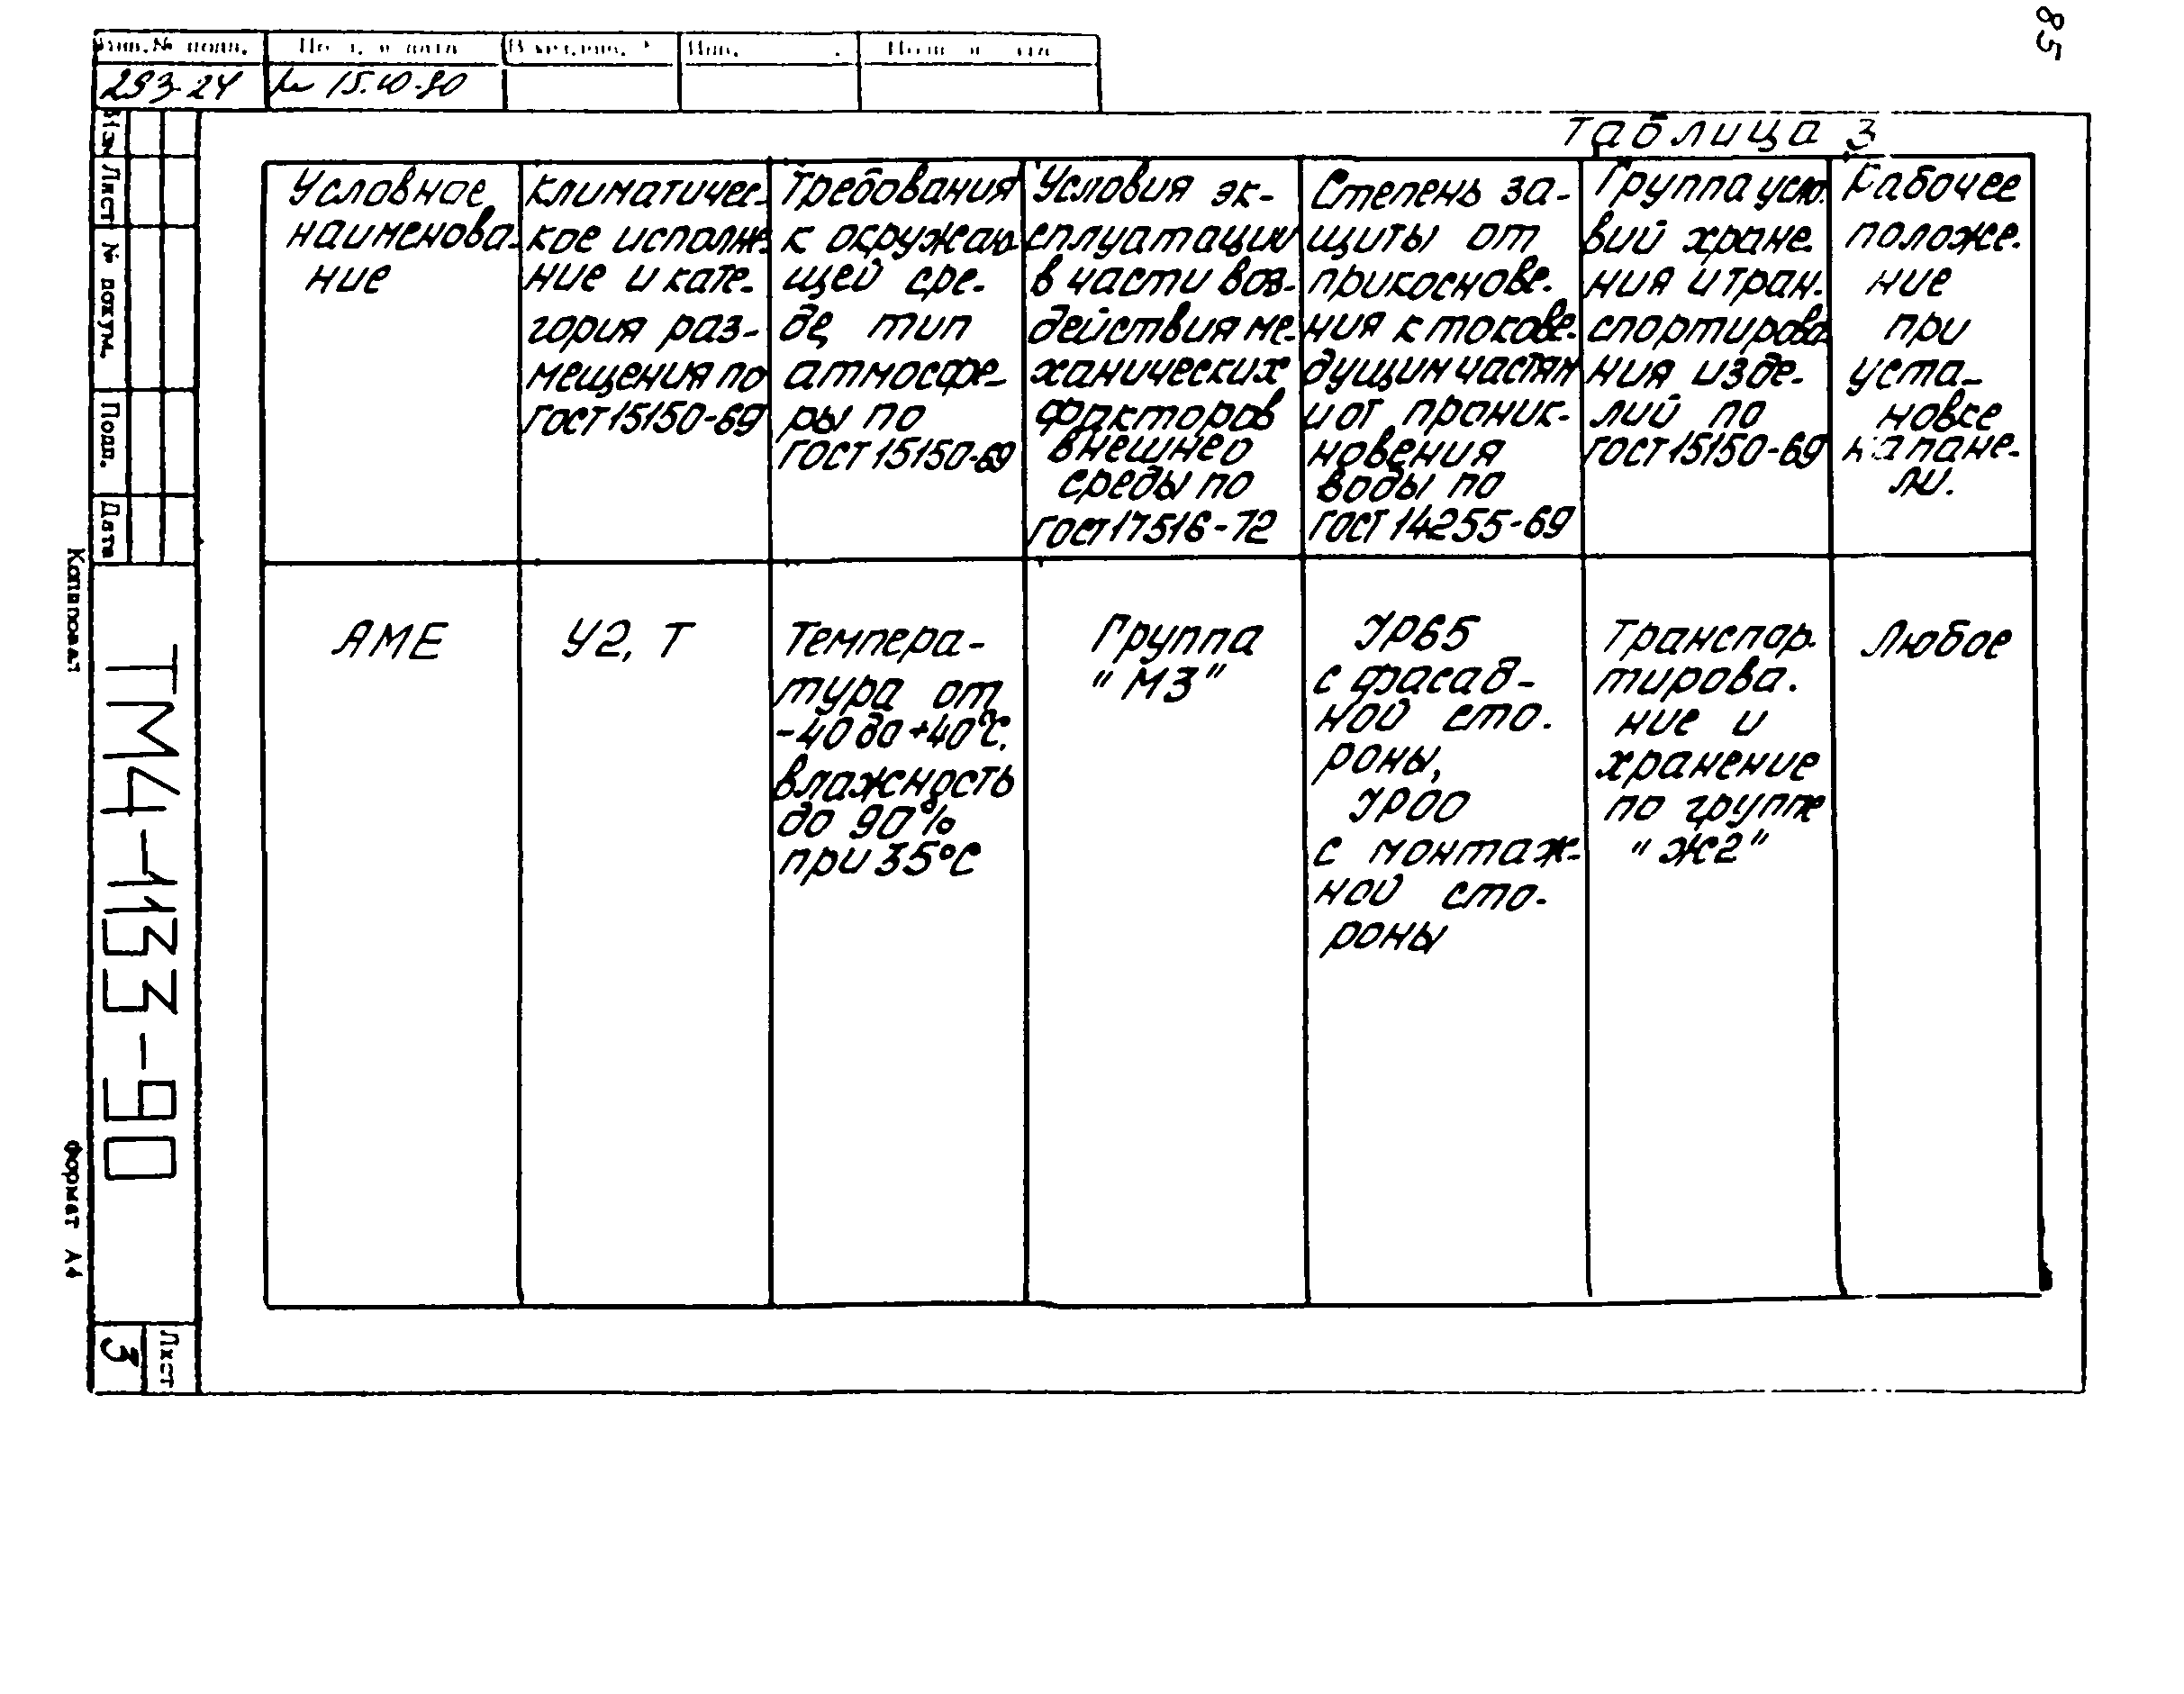 85
Инв.№ подл.
253-24
15.10.80
Таблица 3
Условное
наименова-
ние
Климатичес-
кое исполне-
ние и кате-
гория раз-
мещения по
ГОСТ 15150-69
Требования
к окружаю-
щей сре-
де, тип
атмосфе-
ры по
ГОСТ 15150-69
Условия эк-
сплуатации
в части воз-
действия ме-
ханических
факторов
внешнео
среды по
ГОСТ 17516-72
Степень за-
щиты от
прикоснове-
ния к токове-
дущим частям
и от проник-
новения
воды по
ГОСТ 14255-69
Группа усло-
вий хране-
ния и тран-
спортирова-
ния изде-
лий по
ГОСТ 15150-69
Рабочее
положе-
ние
при
уста-
новке
на пане-
ли.
АМЕ
У2, Т
Темпера-
тура от
-40 до +40°С.
влажность
до 90%
при 35°С
Группа
"М3"
УР65
с фасад-
ной сто-
роны,
УР00
с монтаж-
ной сто-
роны
Транспор-
тирова-
ние и
хранение
по группе
"Ж2"
Любое
Изм
Лист
№ докум.
Подп.
Дата
ТМ4-133-90
Лист
3
Копировал
Формат А4